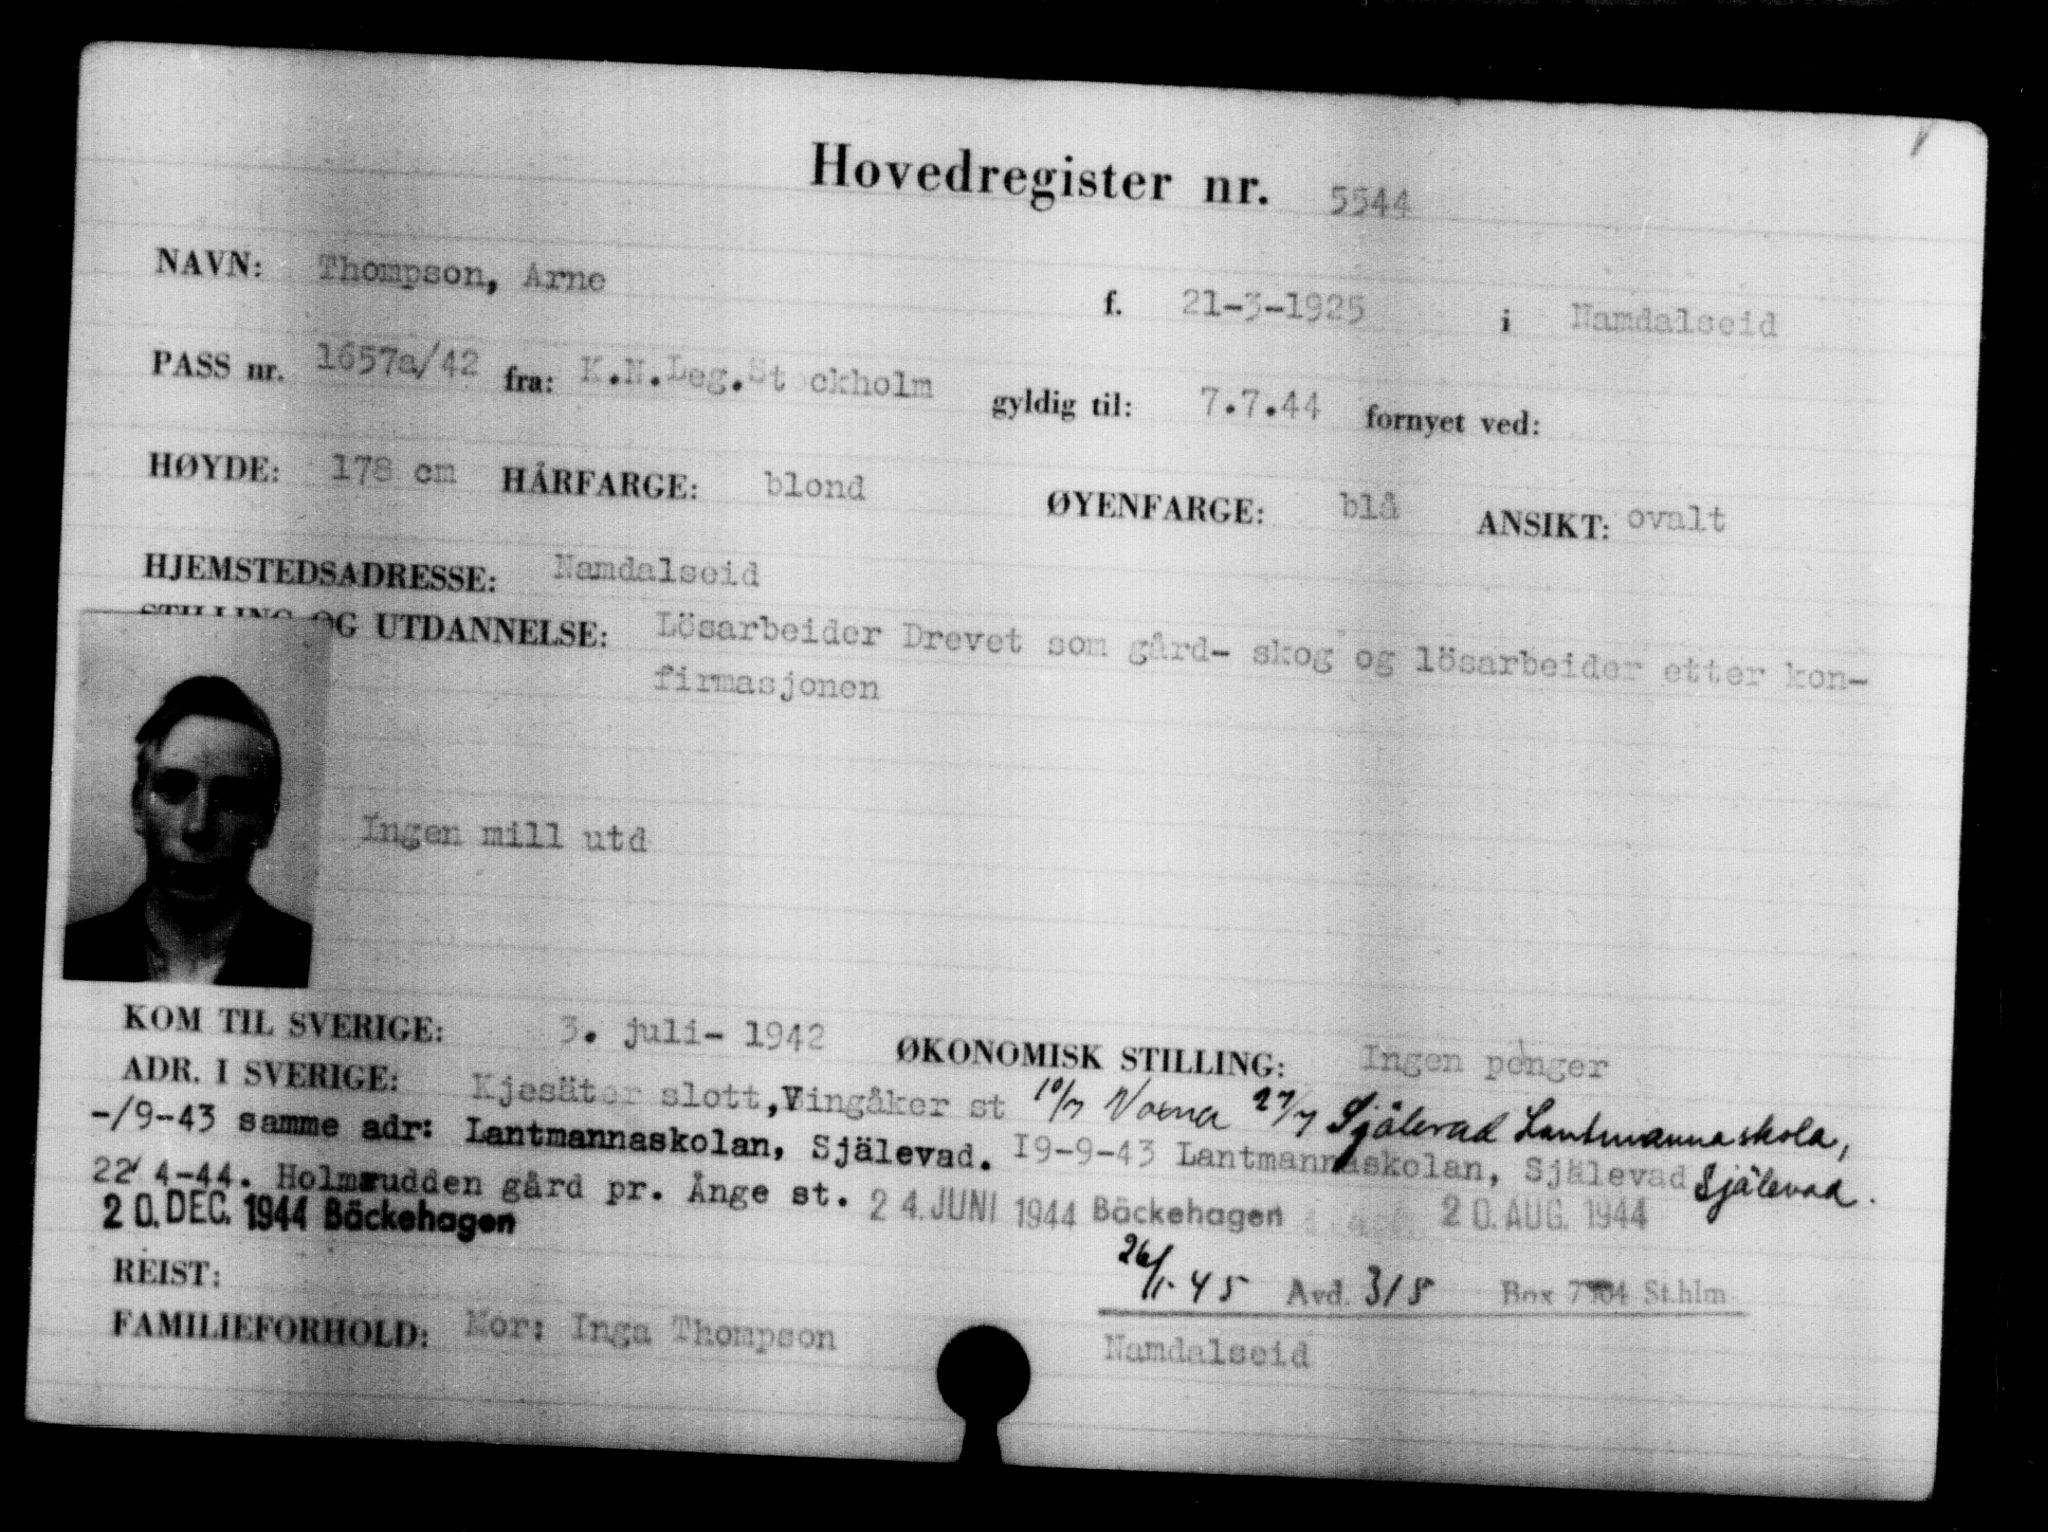 Hovedregister nr. 5544
NAVN: Thompson, Arne f. 21-3-1925 i Namdalseid
PASS nr. 1657a/42 fra: K.N.Leg.Stockholm gyldig til: 7.7.44 fornyet ved:
HØYDE: 178 cm HÅRFARGE: blond ØYENFARGE: blå ANSIKT: ovalt
HJEMSTEDSADRESSE: Namdalseid
STILLING OG UTDANNELSE: Lösarbeider Drevet som gård- skog og lösarbeider etter kon-
firmasjonen
Ingen mill utd
KOM TIL SVERIGE: 3. juli- 1942 ØKONOMISK STILLING: Ingen penger
ADR. I SVERIGE: Kjesäter slott, Vingåker st 10/7 Voxna 27/7 Själevad Lantmannaskola,
-/9-43 samme adr: Lantmannaskolan, Själevad. I9-9-43 Lantmannaskolan, Själevad Själevad.
22/ 4-44. Holmsudden gård pr. Ånge st. 24. JUNI 1944 Bäckehagen 20. AUG. 1944
20. DEC. 1944 Bäckehagen
REIST: 26/1-45 Avd. 318 Box St.hlm
FAMILIEFORHOLD: Mor: Inga Thompson Namdalseid